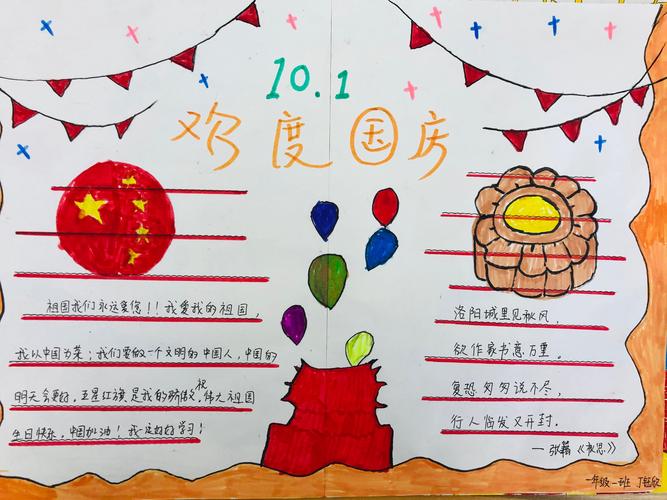 10.1
欢度国庆
祖国我们永远爱您！！我爱我的祖国，
我以中国为荣；我们要做一个文明的中国人，中国的
明天会更好，五星红旗是我的骄傲，祝伟大祖国
生日快乐，中国加油！我一定好好学习！
洛阳城里见秋风，
欲作家书意万重。
复恐匆匆说不尽，
行人临发又开封。
—张籍《秋思》
一年级一班